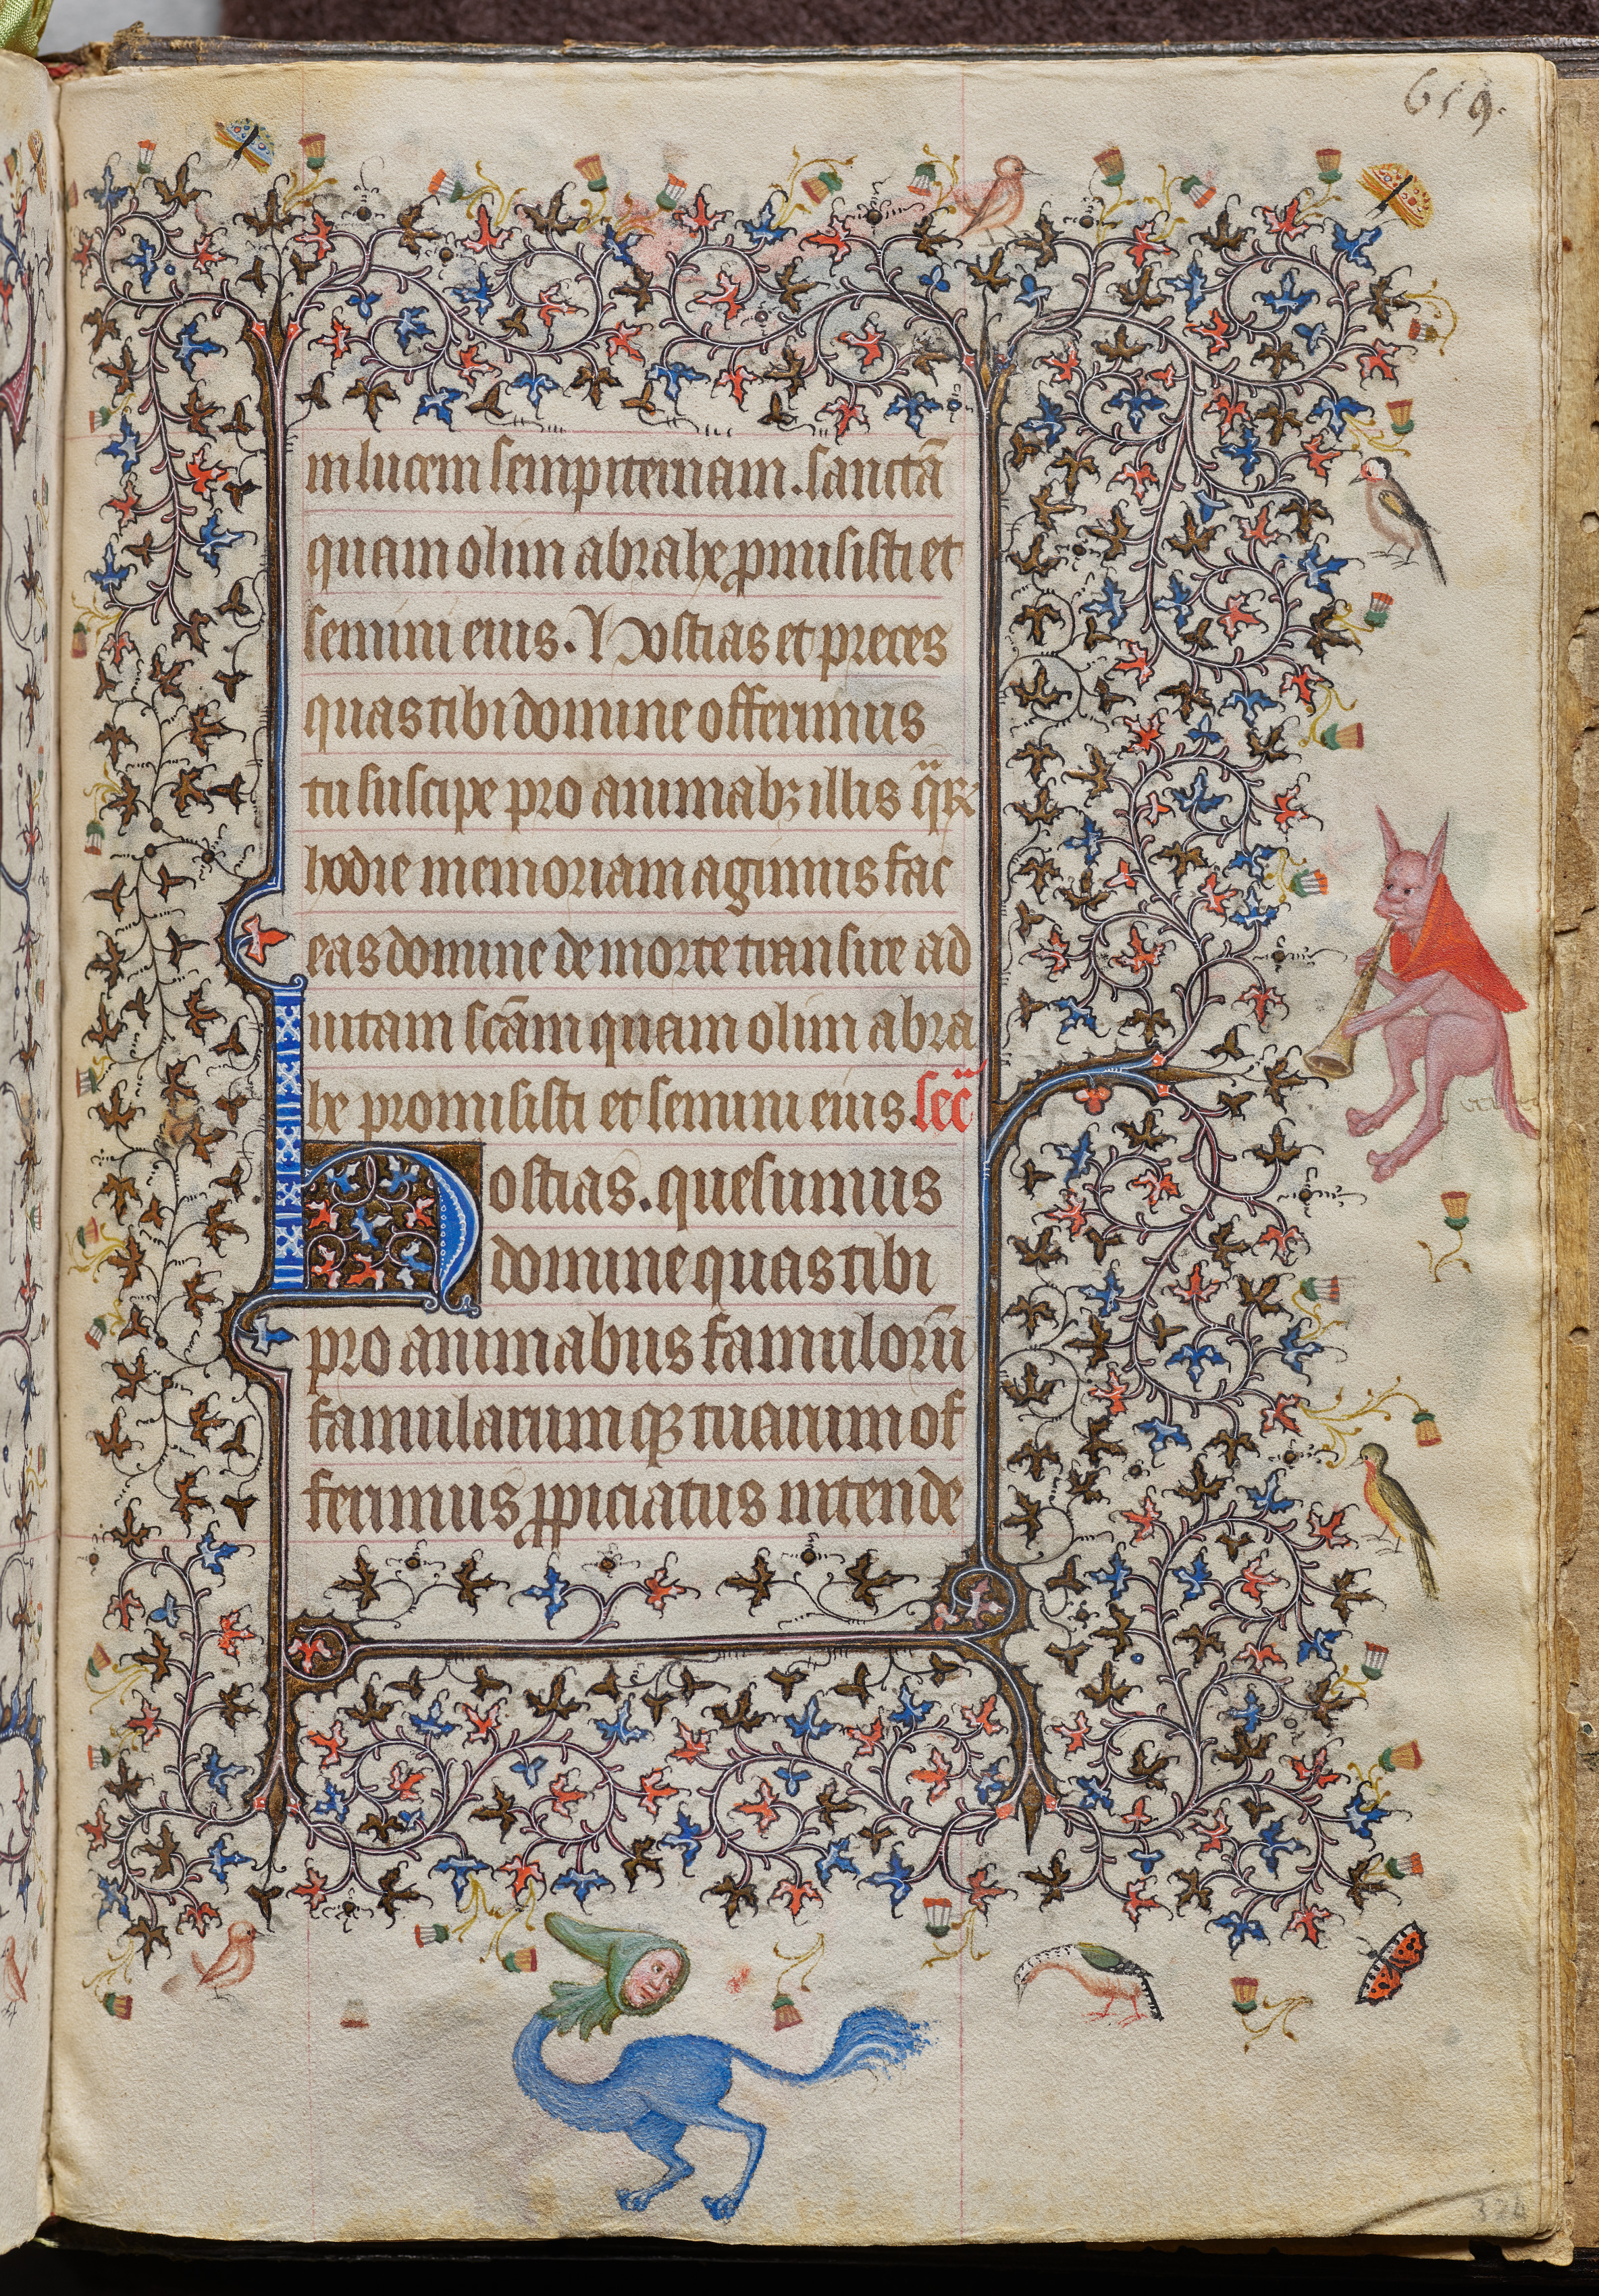 659.
in lucem sempiternam. sanctā
quam olim abrahe pmisisti et
semini eius. Hostias et preces
quas tibi domine offerimus
tu suscipe pro animabꝫ illis qͣꝝ
hodie memoriam agimus fac
eas domine de morte transire ad
uitam scām quam olim abra
he promisisti et semini eius. secͣ
Hostias. quesumus
domine quas tibi
pro animabus famulorū
famularumqꝫ tuarum of
ferimus ꝓpiciatus intende
326